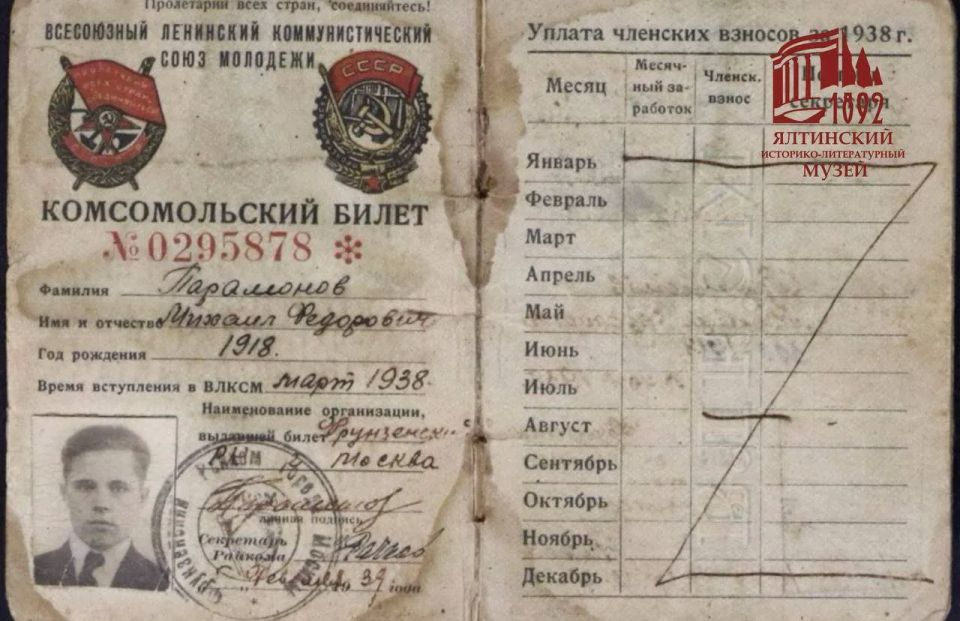 Пролетарии всех стран, соединяйтесь!
ВСЕСОЮЗНЫЙ ЛЕНИНСКИЙ КОММУНИСТИЧЕСКИЙ
СОЮЗ МОЛОДЕЖИ
СССР
КОМСОМОЛЬСКИЙ БИЛЕТ
№ 0295878 *
Фамилия Парамонов
Имя и отчество Михаил Федорович
Год рождения 1918.
Время вступления в ВЛКСМ март 1938.
Наименование организации,
выдавшей билет Фрунзенский
РК Москва
личная подпись
Секретарь
Райкома
Февраля 1939 года
Уплата членских взносов за 1938 г.
Месяц
Месяч-
ный за-
работок
Членск.
взнос
секретаря
1892
ЯЛТИНСКИЙ
ИСТОРИКО-ЛИТЕРАТУРНЫЙ
МУЗЕЙ
Январь
Февраль
Март
Апрель
Май
Июнь
Июль
Август
Сентябрь
Октябрь
Ноябрь
Декабрь